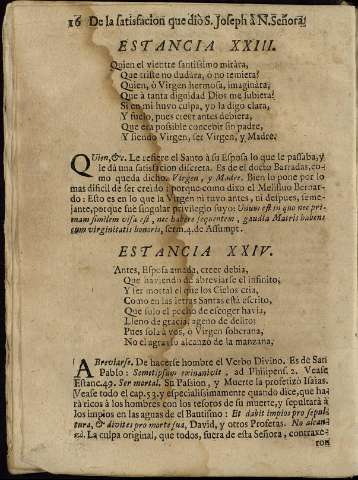 16 De la satisfacion que diò S. Joseph à N. Señora,
ESTANCIA XXIII.
Quien el vientre santissimo miràra,
Que triste no dudàra, ò no temiera?
Quien, ò Virgen hermosa, imaginàra,
Que à tanta dignidad Dios me subiera?
Si en mi huvo culpa, yo la digo clara,
Y fuelo, pues creer antes debiera,
Que era possible concebir sin padre,
Y siendo Virgen, ser Virgen, y Madre.
QUien, &c. Le refiere el Santo à su Esposa lo que le passaba, y
le dà una satisfacion discreta. Es de el docto Barradas, co-
mo queda dicho. Virgen, y Madre. Bien lo pone por lo
mas dificil de ser creido; porque como dixo el Melifluo Bernar-
do: Esto es en lo que la Virgen ni tuvo antes, ni despues, seme-
jante, porque fue singular privilegio suyo: Unum est in quo nec pri-
mam similem visa est, nec habere sequentem, gaudia Matris habens
cum virginitatis honore, serm. 4. de Assumpt.
ESTANCIA XXIV.
Antes, Esposa amada, creer debia,
Que haviendo de abreviarse el infinito,
Y ser mortal el que los Cielos cria,
Como en las letras Santas està escrito,
Que solo el pecho de escoger havia,
Lleno de gracia, ageno de delito;
Pues sola à vos, ò Virgen soberana,
No el agravio alcanzo de la manzana,
ABreviarse. De hacerse hombre el Verbo Divino. Es de San
Pablo: Semetipsum exinanivit, ad Philipens. 2. Vease
Estanc. 49. Ser mortal. Su Passion, y Muerte la profetizò Isaias.
Vease todo el cap. 53. y especialissimamente quando dice, que ha-
rà ricos à los hombres con los tesoros de su muerte, y sepultarà à
los impios en las aguas de el Bautismo: Et dabit impios pro sepul-
tura, & divites pro morte sua, David, y otros Profetas. No alcan-
zò. La culpa original, que todos, fuera de esta Señora, contraxe-
ron